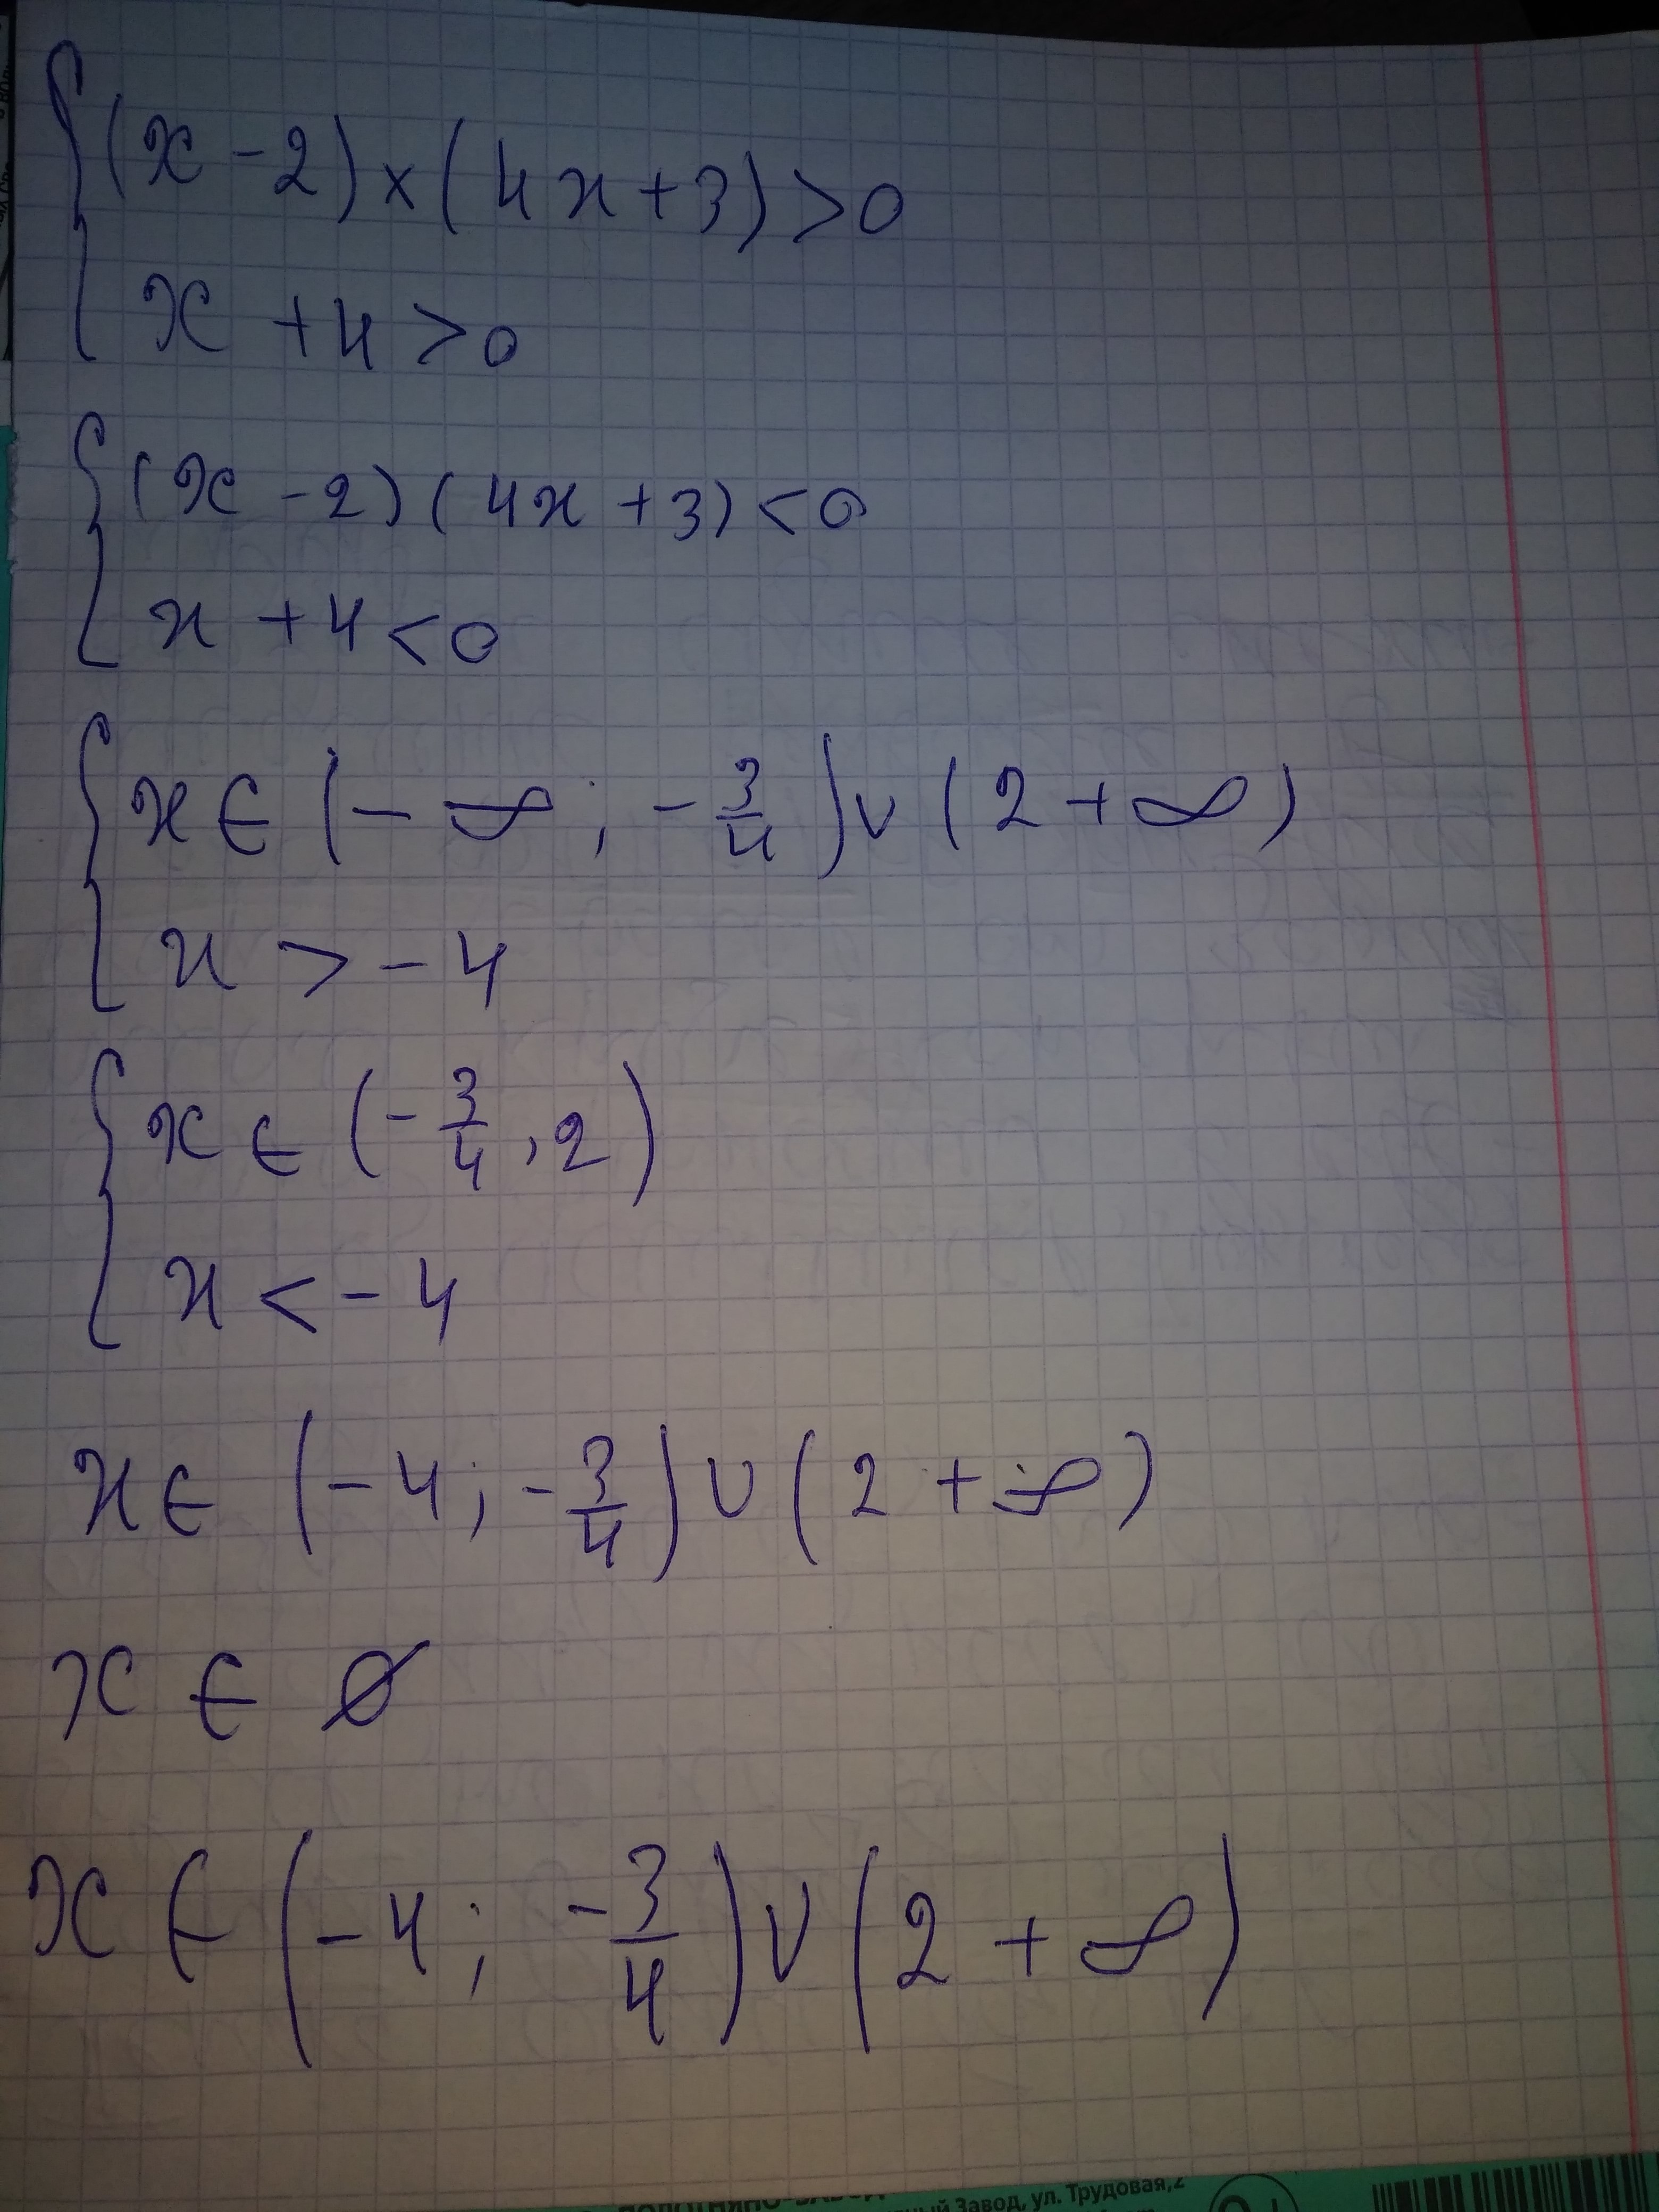 (x - 2) × (4x + 3) > 0
x + 4 > 0
(x - 2) (4x + 3) < 0
x + 4 < 0
x ∈ (- ∞ ; - 3/4) ∪ (2 + ∞)
x > - 4
x ∈ (- 3/4 , 2)
x < - 4
x ∈ (- 4 ; - 3/4) ∪ (2 + ∞)
x ∈ ∅
x ∈ (- 4 ; - 3/4) ∪ (2 + ∞)
Завод, ул. Трудовая, 2